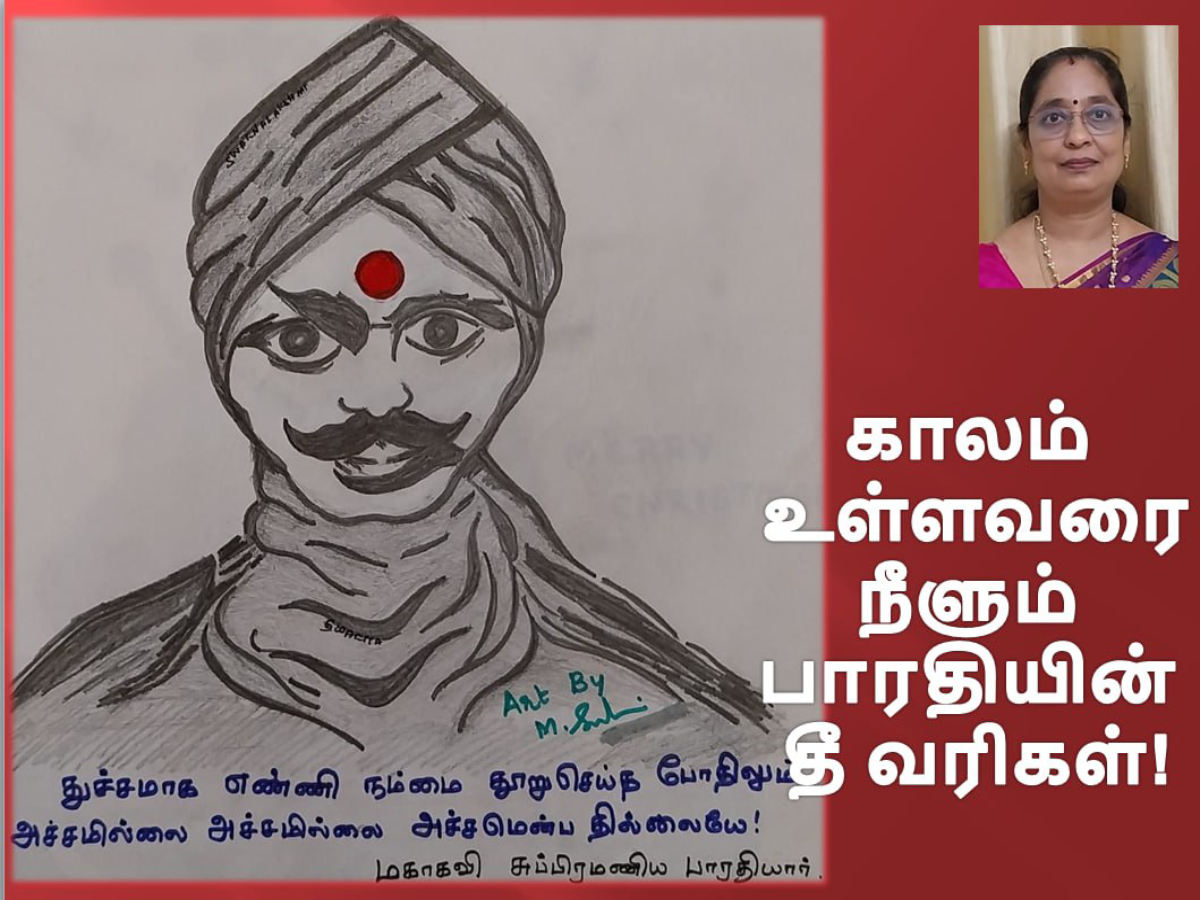 SWARNALAKSHMI
SWARNA
Art By
துச்சமாக எண்ணி நம்மை தூறுசெய்த போதிலும்
அச்சமில்லை அச்சமில்லை அச்சமென்ப தில்லையே!
மகாகவி சுப்பிரமணிய பாரதியார்.
காலம்
உள்ளவரை
நீளும்
பாரதியின்
தீ வரிகள்!
MERRY